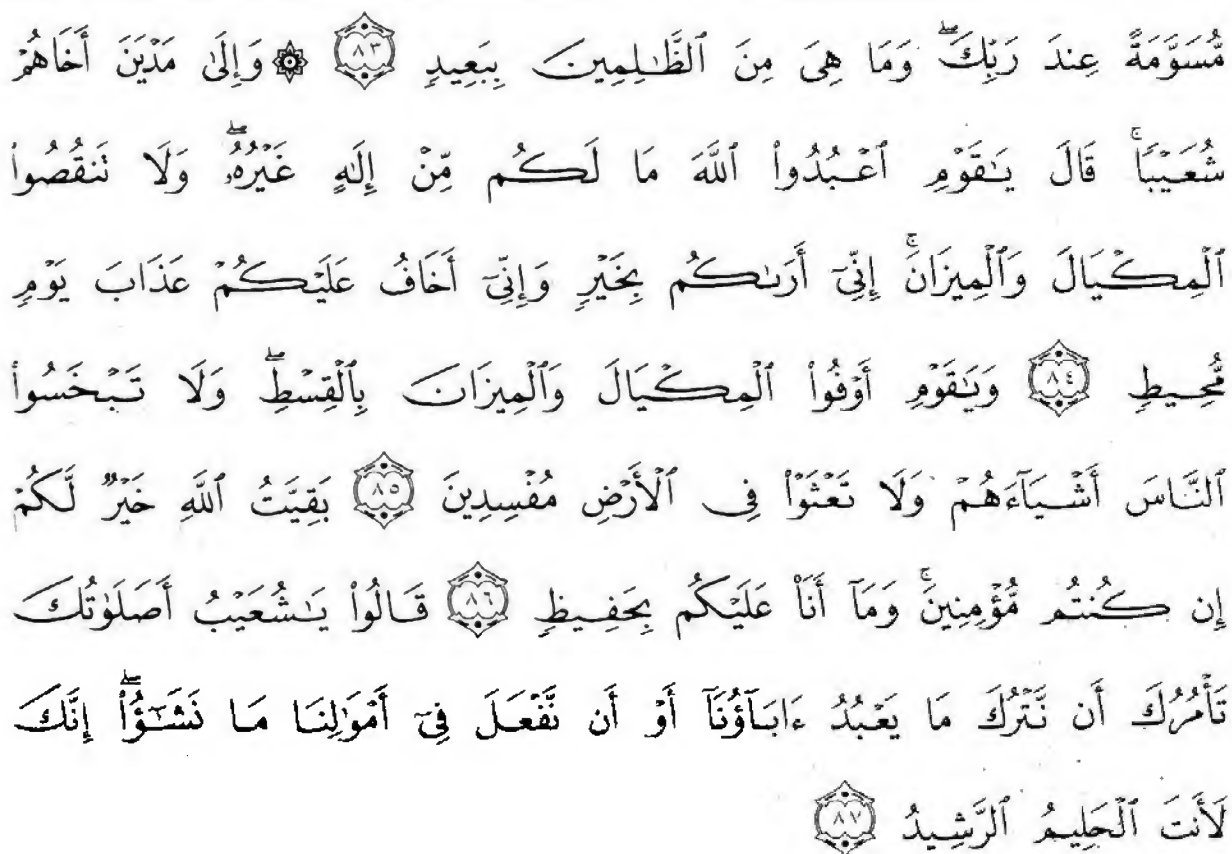 مُّسَوَّمَةً عِندَ رَبِّكَ ۖ وَمَا هِىَ مِنَ ٱلظَّـٰلِمِينَ بِبَعِيدٍ ٨٣ ۞ وَإِلَىٰ مَدْيَنَ أَخَاهُمْ
شُعَيْبًا ۚ قَالَ يَـٰقَوْمِ ٱعْبُدُوا۟ ٱللَّهَ مَا لَكُم مِّنْ إِلَـٰهٍ غَيْرُهُۥ ۖ وَلَا تَنقُصُوا۟
ٱلْمِكْيَالَ وَٱلْمِيزَانَ ۚ إِنِّىٓ أَرَىٰكُم بِخَيْرٍ وَإِنِّىٓ أَخَافُ عَلَيْكُمْ عَذَابَ يَوْمٍ
مُّحِيطٍ ٨٤ وَيَـٰقَوْمِ أَوْفُوا۟ ٱلْمِكْيَالَ وَٱلْمِيزَانَ بِٱلْقِسْطِ ۖ وَلَا تَبْخَسُوا۟
ٱلنَّاسَ أَشْيَآءَهُمْ وَلَا تَعْثَوْا۟ فِى ٱلْأَرْضِ مُفْسِدِينَ ٨٥ بَقِيَّتُ ٱللَّهِ خَيْرٌ لَّكُمْ
إِن كُنتُم مُّؤْمِنِينَ ۚ وَمَآ أَنَا۠ عَلَيْكُم بِحَفِيظٍ ٨٦ قَالُوا۟ يَـٰشُعَيْبُ أَصَلَوٰتُكَ
تَأْمُرُكَ أَن نَّتْرُكَ مَا يَعْبُدُ ءَابَآؤُنَآ أَوْ أَن نَّفْعَلَ فِىٓ أَمْوَٰلِنَا مَا نَشَـٰٓؤُا۟ ۖ إِنَّكَ
لَأَنتَ ٱلْحَلِيمُ ٱلرَّشِيدُ ٨٧